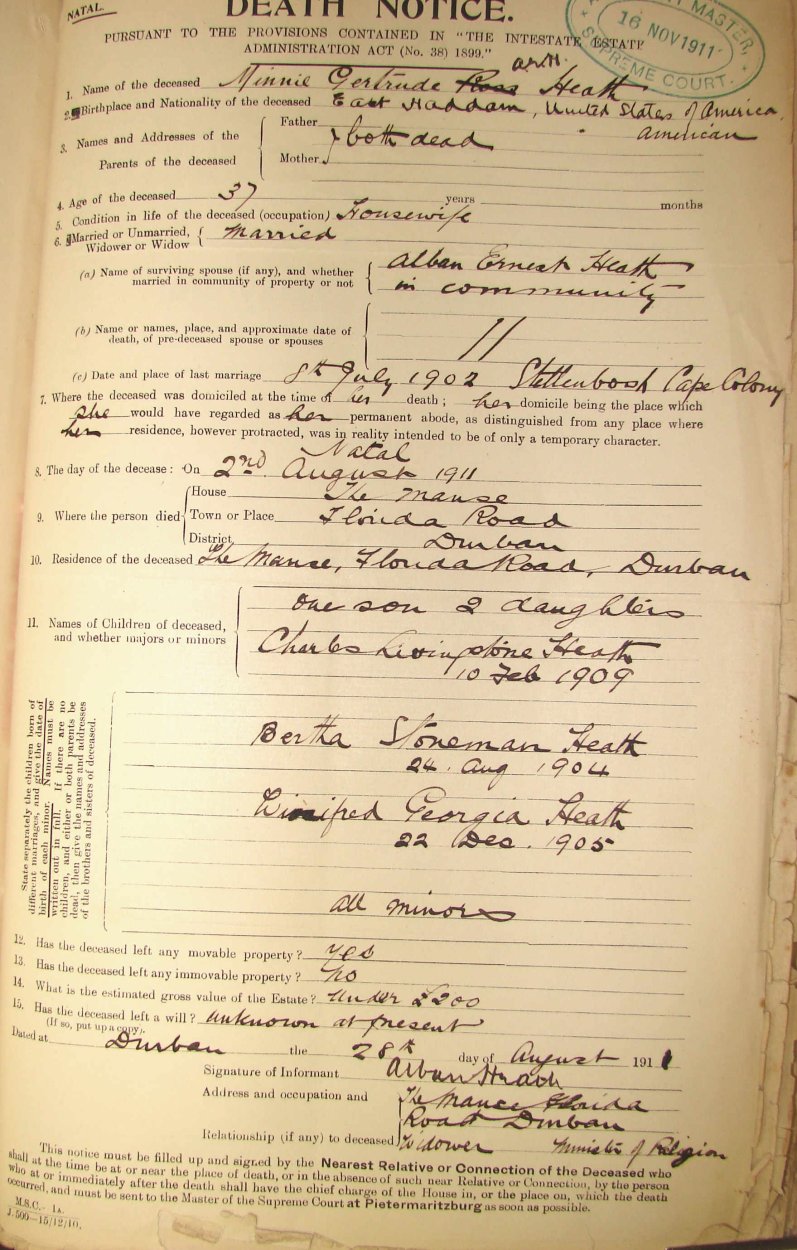 NATAL.
DEATH NOTICE.
MASTER
16 NOV 1911
SUPREME COURT.
PURSUANT TO THE PROVISIONS CONTAINED IN "THE INTESTATE ESTATE
ADMINISTRATION ACT (No. 38) 1899."
1. Name of the deceased Minnie Gertrude Ross Heath
2. Birthplace and Nationality of the deceased East Haddam, United States of America
American
3. Names and Addresses of the Parents of the deceased
Father
both dead
Mother
4. Age of the deceased 37 years months
5. Condition in life of the deceased (occupation) Housewife
6. Married or Unmarried, Widower or Widow Married
(a) Name of surviving spouse (if any), and whether married in community of property or not
Alban Ernest Heath
in community
(b) Name or names, place, and approximate date of death, of pre-deceased spouse or spouses
//
(c) Date and place of last marriage 8th July 1902 Stellenbosh Cape Colony
7. Where the deceased was domiciled at the time of her death; her domicile being the place which
she would have regarded as her permanent abode, as distinguished from any place where
her residence, however protracted, was in reality intended to be of only a temporary character.
Natal
8. The day of the decease: On 2nd August 1911
9. Where the person died
House The Manse
Town or Place Florida Road
District Durban
10. Residence of the deceased The Manse, Florida Road, Durban
11. Names of Children of deceased, and whether majors or minors
one son 2 daughters
Charles Livingstone Heath
10 Feb 1909
State separately the children born of
different marriages, and give the date of
birth of each minor. Names must be
written out in full. If there are no
children, and either or both parents be
dead, then give the names and addresses
of the brothers and sisters of deceased.
Bertha Stoneman Heath
24. Aug 1904
Winifred Georgia Heath
22 Dec. 1905
all minors
12. Has the deceased left any movable property? yes
13. Has the deceased left any immovable property? no
14. What is the estimated gross value of the Estate? under £200
15. Has the deceased left a will? unknown at present
(If so, put up a copy).
Dated at Durban the 28th day of August 1911
Signature of Informant Alban Heath
Address and occupation and
The Manse Florida
Road Durban
Relationship (if any) to deceased Widower Minister of Religion
This notice must be filled up and signed by the Nearest Relative or Connection of the Deceased who
shall at the time be at or near the place of death, or in the absence of such near Relative or Connection, by the person
who at or immediately after the death shall have the chief charge of the House in, or the place on, which the death
occurred, and must be sent to the Master of the Supreme Court at Pietermaritzburg as soon as possible.
M.S.C.- 1A.
J.500-15/12/10.